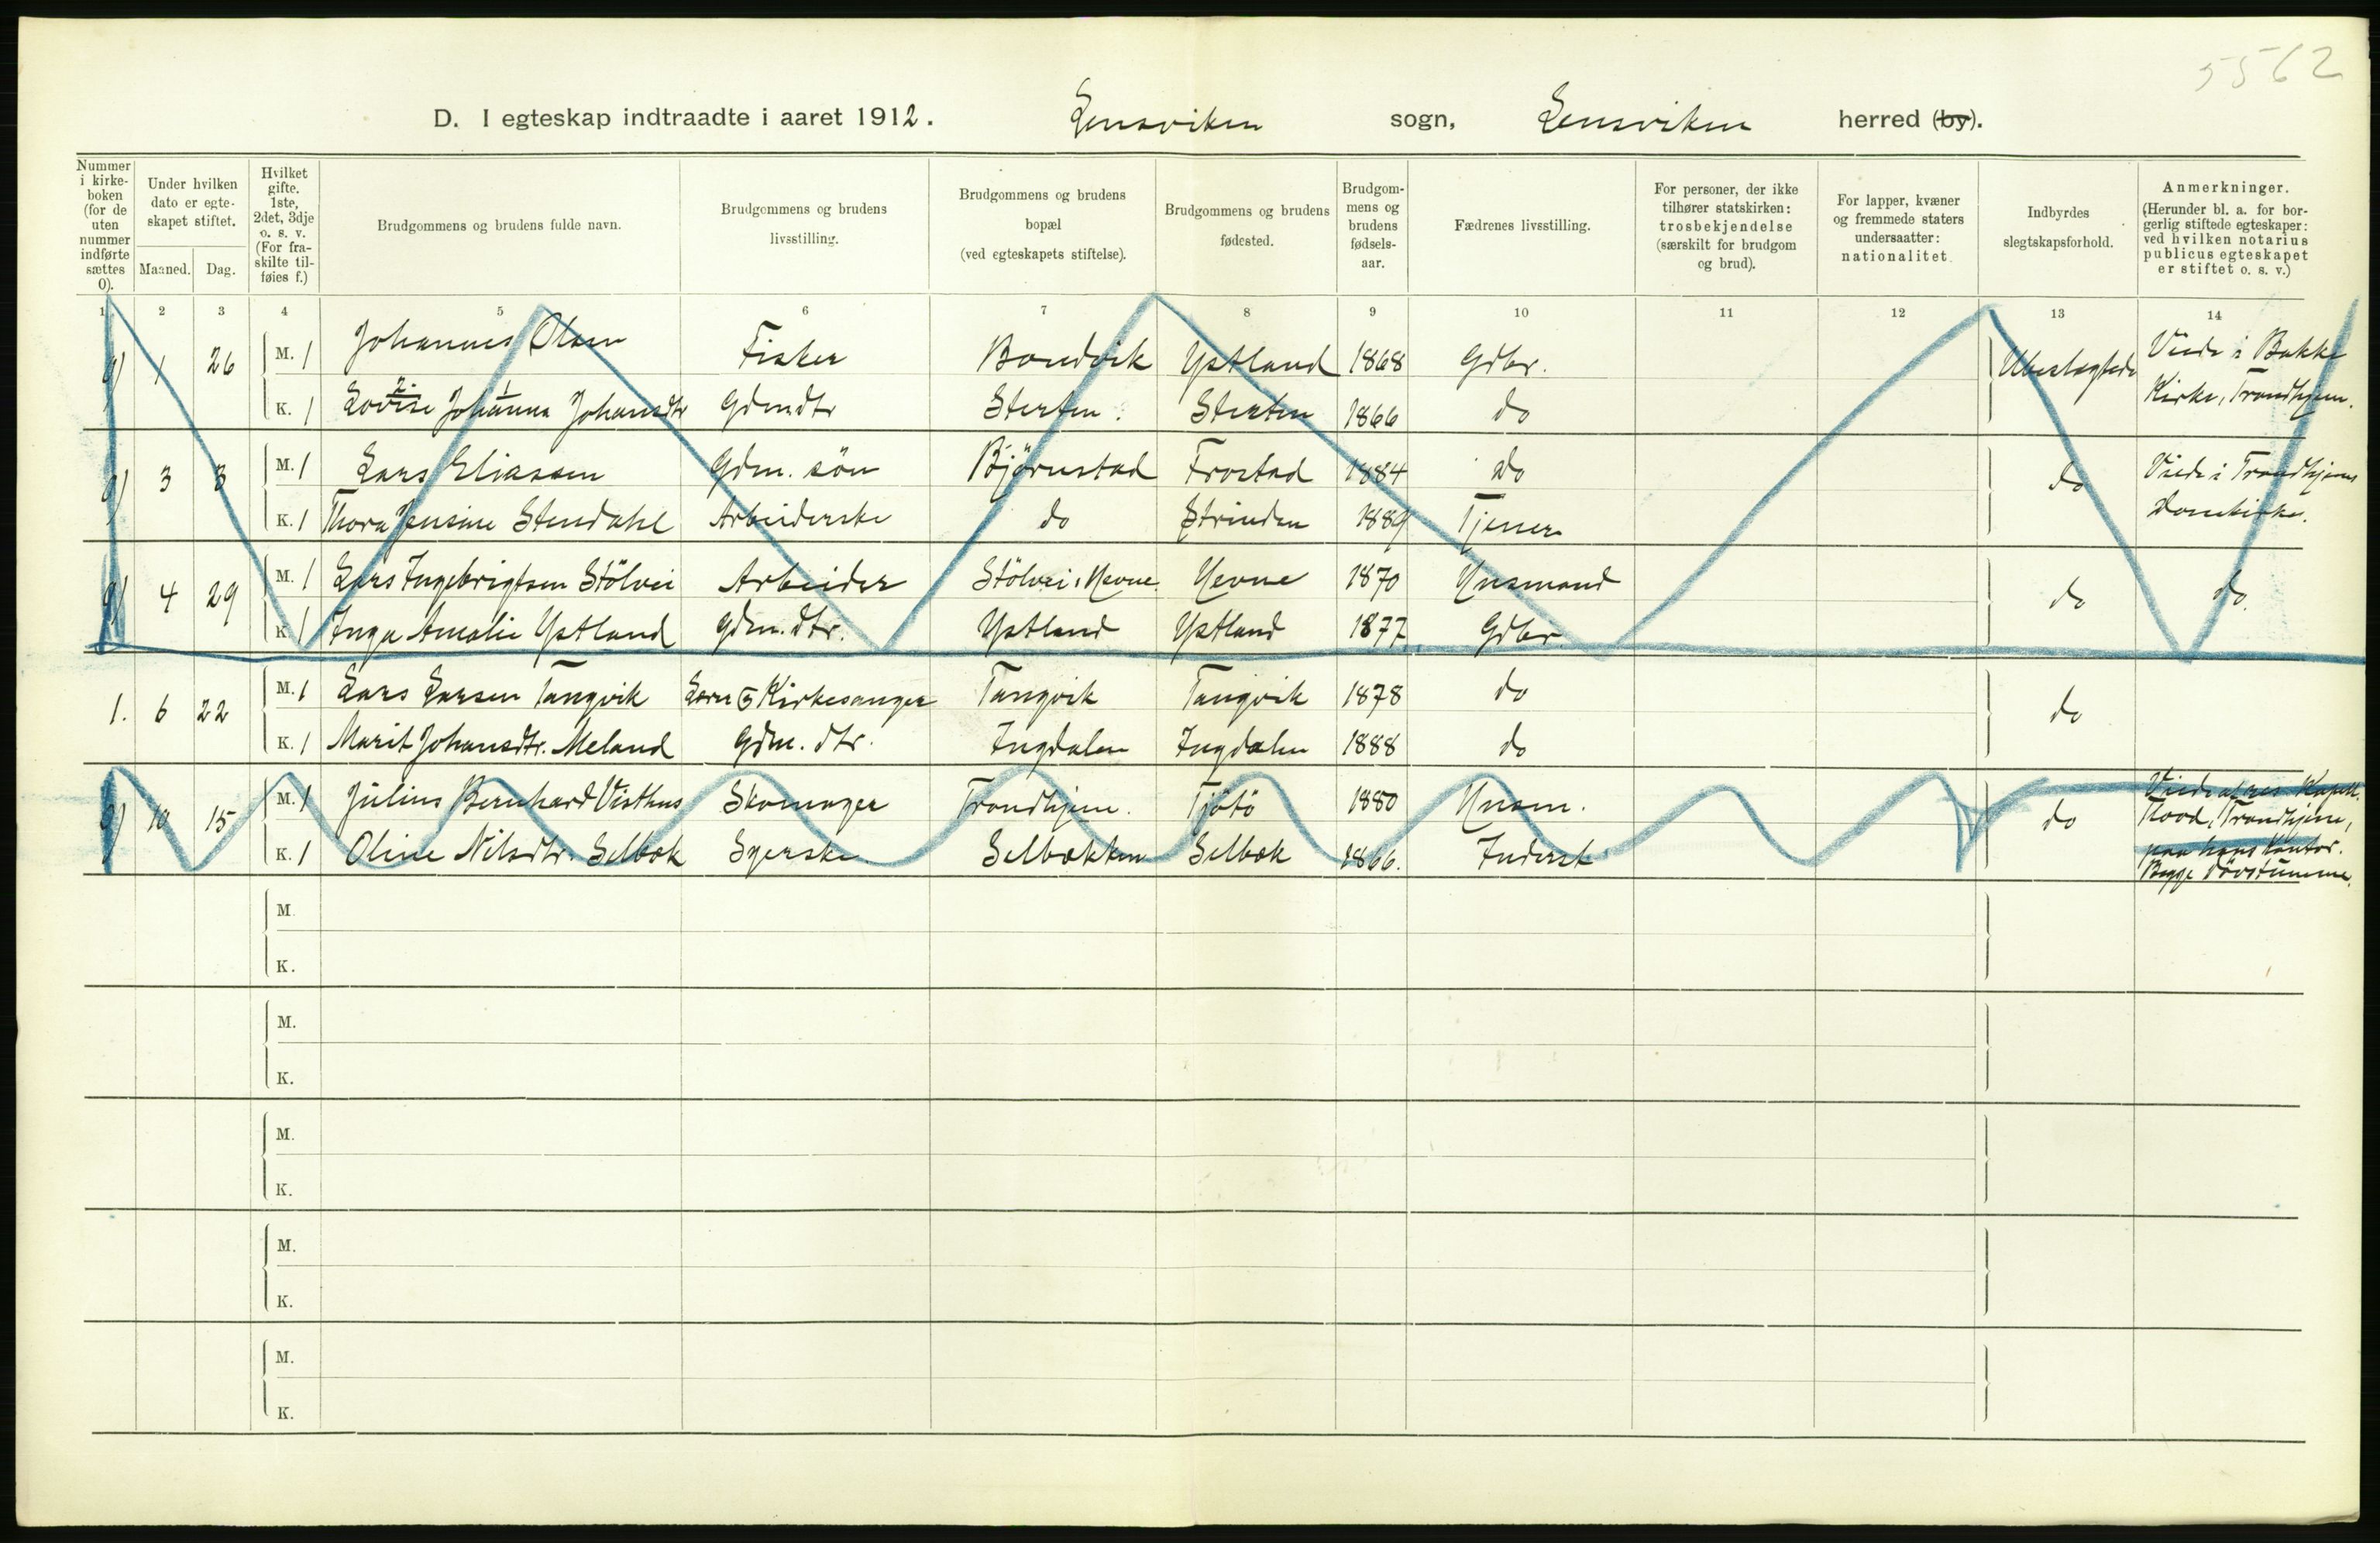 5562
D. I egteskap indtraadte i aaret 1912. Lensviken sogn, Lensviken herred (by).
Nummer i kirke-boken (for de uten nummer indførte sættes 0).
Under hvilken dato er egte-skapet stiftet.
Maaned. Dag.
Hvilket gifte. 1ste, 2det, 3dje o. s. v. (For fra-skilte til-føies f.)
Brudgommens og brudens fulde navn.
Brudgommens og brudens livsstilling.
Brudgommens og brudens bopæl (ved egteskapets stiftelse).
Brudgommens og brudens fødested.
Brudgom-mens og brudens fødsels-aar.
Fædrenes livsstilling.
For personer, der ikke tilhører statskirken: trosbekjendelse (særskilt for brudgom og brud).
For lapper, kvæner og fremmede staters undersaatter: nationalitet.
Indbyrdes slegtskapsforhold.
Anmerkninger. (Herunder bl. a. for bor-gerlig stiftede egteskaper: ved hvilken notarius publicus egteskapet er stiftet o. s. v.)
1 2 3 4 5 6 7 8 9 10 11 12 13 14
0) 1 26 M. 1 Johannes Olsen Fisker Bondvik Ystland 1868 Gdbr. Ubeslægtede Viede i Bakke
K. 1 Lovise Johanna Johansdtr Gdmdtr Sterten. Sterten 1866 do Kirke, Trondhjem.
0) 3 3 M. 1 Lars Eliassen Gdm. sön Björnstad Frostad 1884 do do Viede i Trondhjems
K. 1 Thora Jensine Stendahl Arbeiderske do Strinden 1889 Tjener Domkirke.
0) 4 29 M. 1 Lars Ingebrigtsen Stölvei Arbeider Stölvei, Hevne. Hevne 1870 Husmand do do.
K. 1 Inga Amalie Ystland Gdm. dtr. Ystland Ystland 1877 Gdbr.
1. 6 22 M. 1 Lars Larsen Tangvik Lærer & Kirkesanger Tangvik Tangvik 1878 do do
K. 1 Marit Johansdtr. Meland Gdm. dtr. Ingdalen Ingdalen 1888 do
0) 10 15 M. 1 Julius Bernhard Visthus Skomager Trondhjem. Tjötö 1880 Husm. do Viede af res. Kapell.
K. 1 Oline Nilsdtr. Selbæk Syerske Selbækken Selbæk 1866. Inderst Trondhjem,
paa hans Kontor.
Begge Dövstumme.
M.
K.
M.
K.
M.
K.
M.
K.
M.
K.